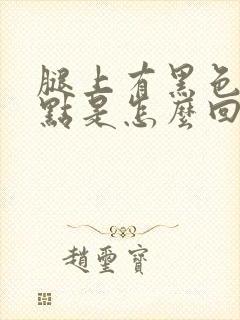 腿上有黑色
點是怎麼回
趙璽寶